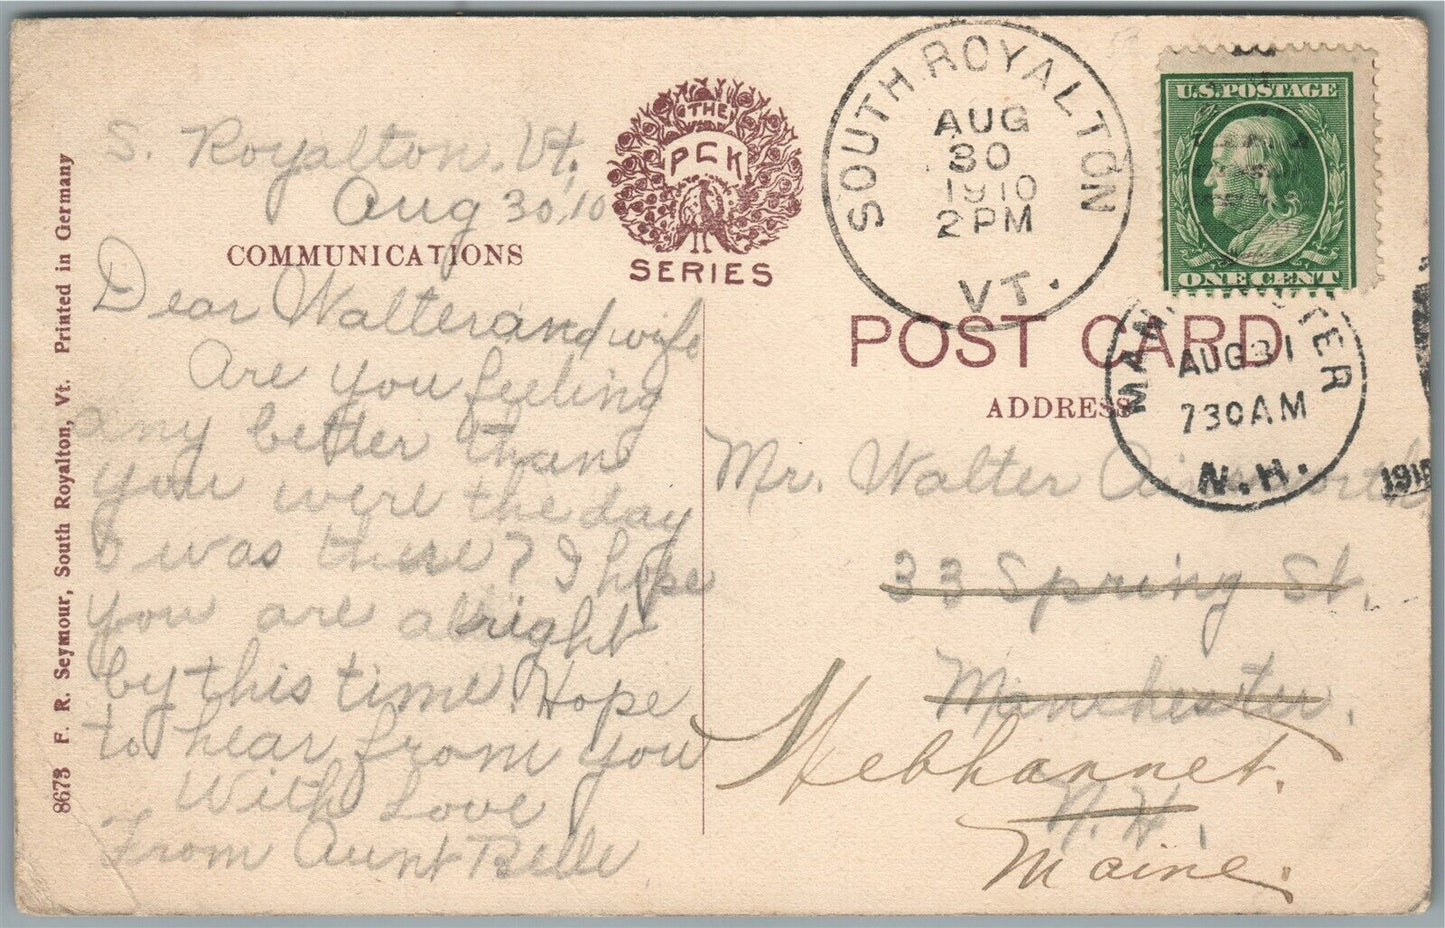 S. Royalton, Vt,
Aug 30, 10
COMMUNICATIONS
Dear Walter and wife
Are you feeling
any better than
you were the day
I was there? I hope
you are alright
by this time. Hope
to hear from you
With Love
From Aunt Belle
8673 F. R. Seymour, South Royalton, Vt. Printed in Germany
THE
PCK
SERIES
SOUTH ROYALTON
AUG
30
1910
2 PM
VT.
U.S. POSTAGE
ONE CENT
POST CARD
ADDRESS
MANCHESTER
AUG 31
730 AM
N.H.
1910
Mr. Walter Ainsworth
33 Spring St.
Manchester.
Kebhannet.
N. H.
Maine.